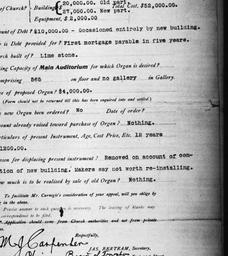 20,000.00. Old part.
of Church? - Building 27,000.00. New part. Total Cost, $52,000.00.
Equipment, $2,000.00
ount of Debt? $10,000.00 - Occasioned entirely by new building.
is Debt provided for? First mortgage payable in five years.
urch built of? Lime stone.
ting Capacity of Main Auditorium for which Organ is desired?
omprising 565 on floor and no gallery in Gallery.
ce of proposed Organ? $4,000.00.
(Form should not be returned till this has been enquired into and settled)
new Organ been ordered? No Date of order?
ount already raised toward purchase of Organ? Nothing.
rticulars of present Instrument, Age, Cost Price, Etc. 12 years
1200.00.
eason for displacing present instrument? Removed on account of con-
tion of new building. Makers say not worth re-installing.
w much is to be realized by sale of old Organ? Nothing.
To facilitate Mr. Carnegie's consideration of your appeal, will you oblige by
Precise answer to each question is necessary. The leaving of blanks may
correspondence to be filed.
Application should come from Church authorities and not from private
Respectfully,
JAS. BERTRAM, Secretary.
M J Carpenter